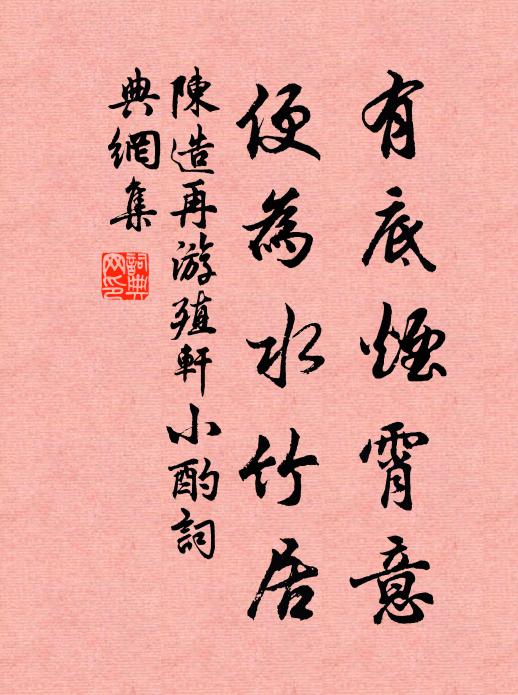 有底煙霄意
便為水竹居
陳造再游殖軒小酌詞
典網集
詞典
网印